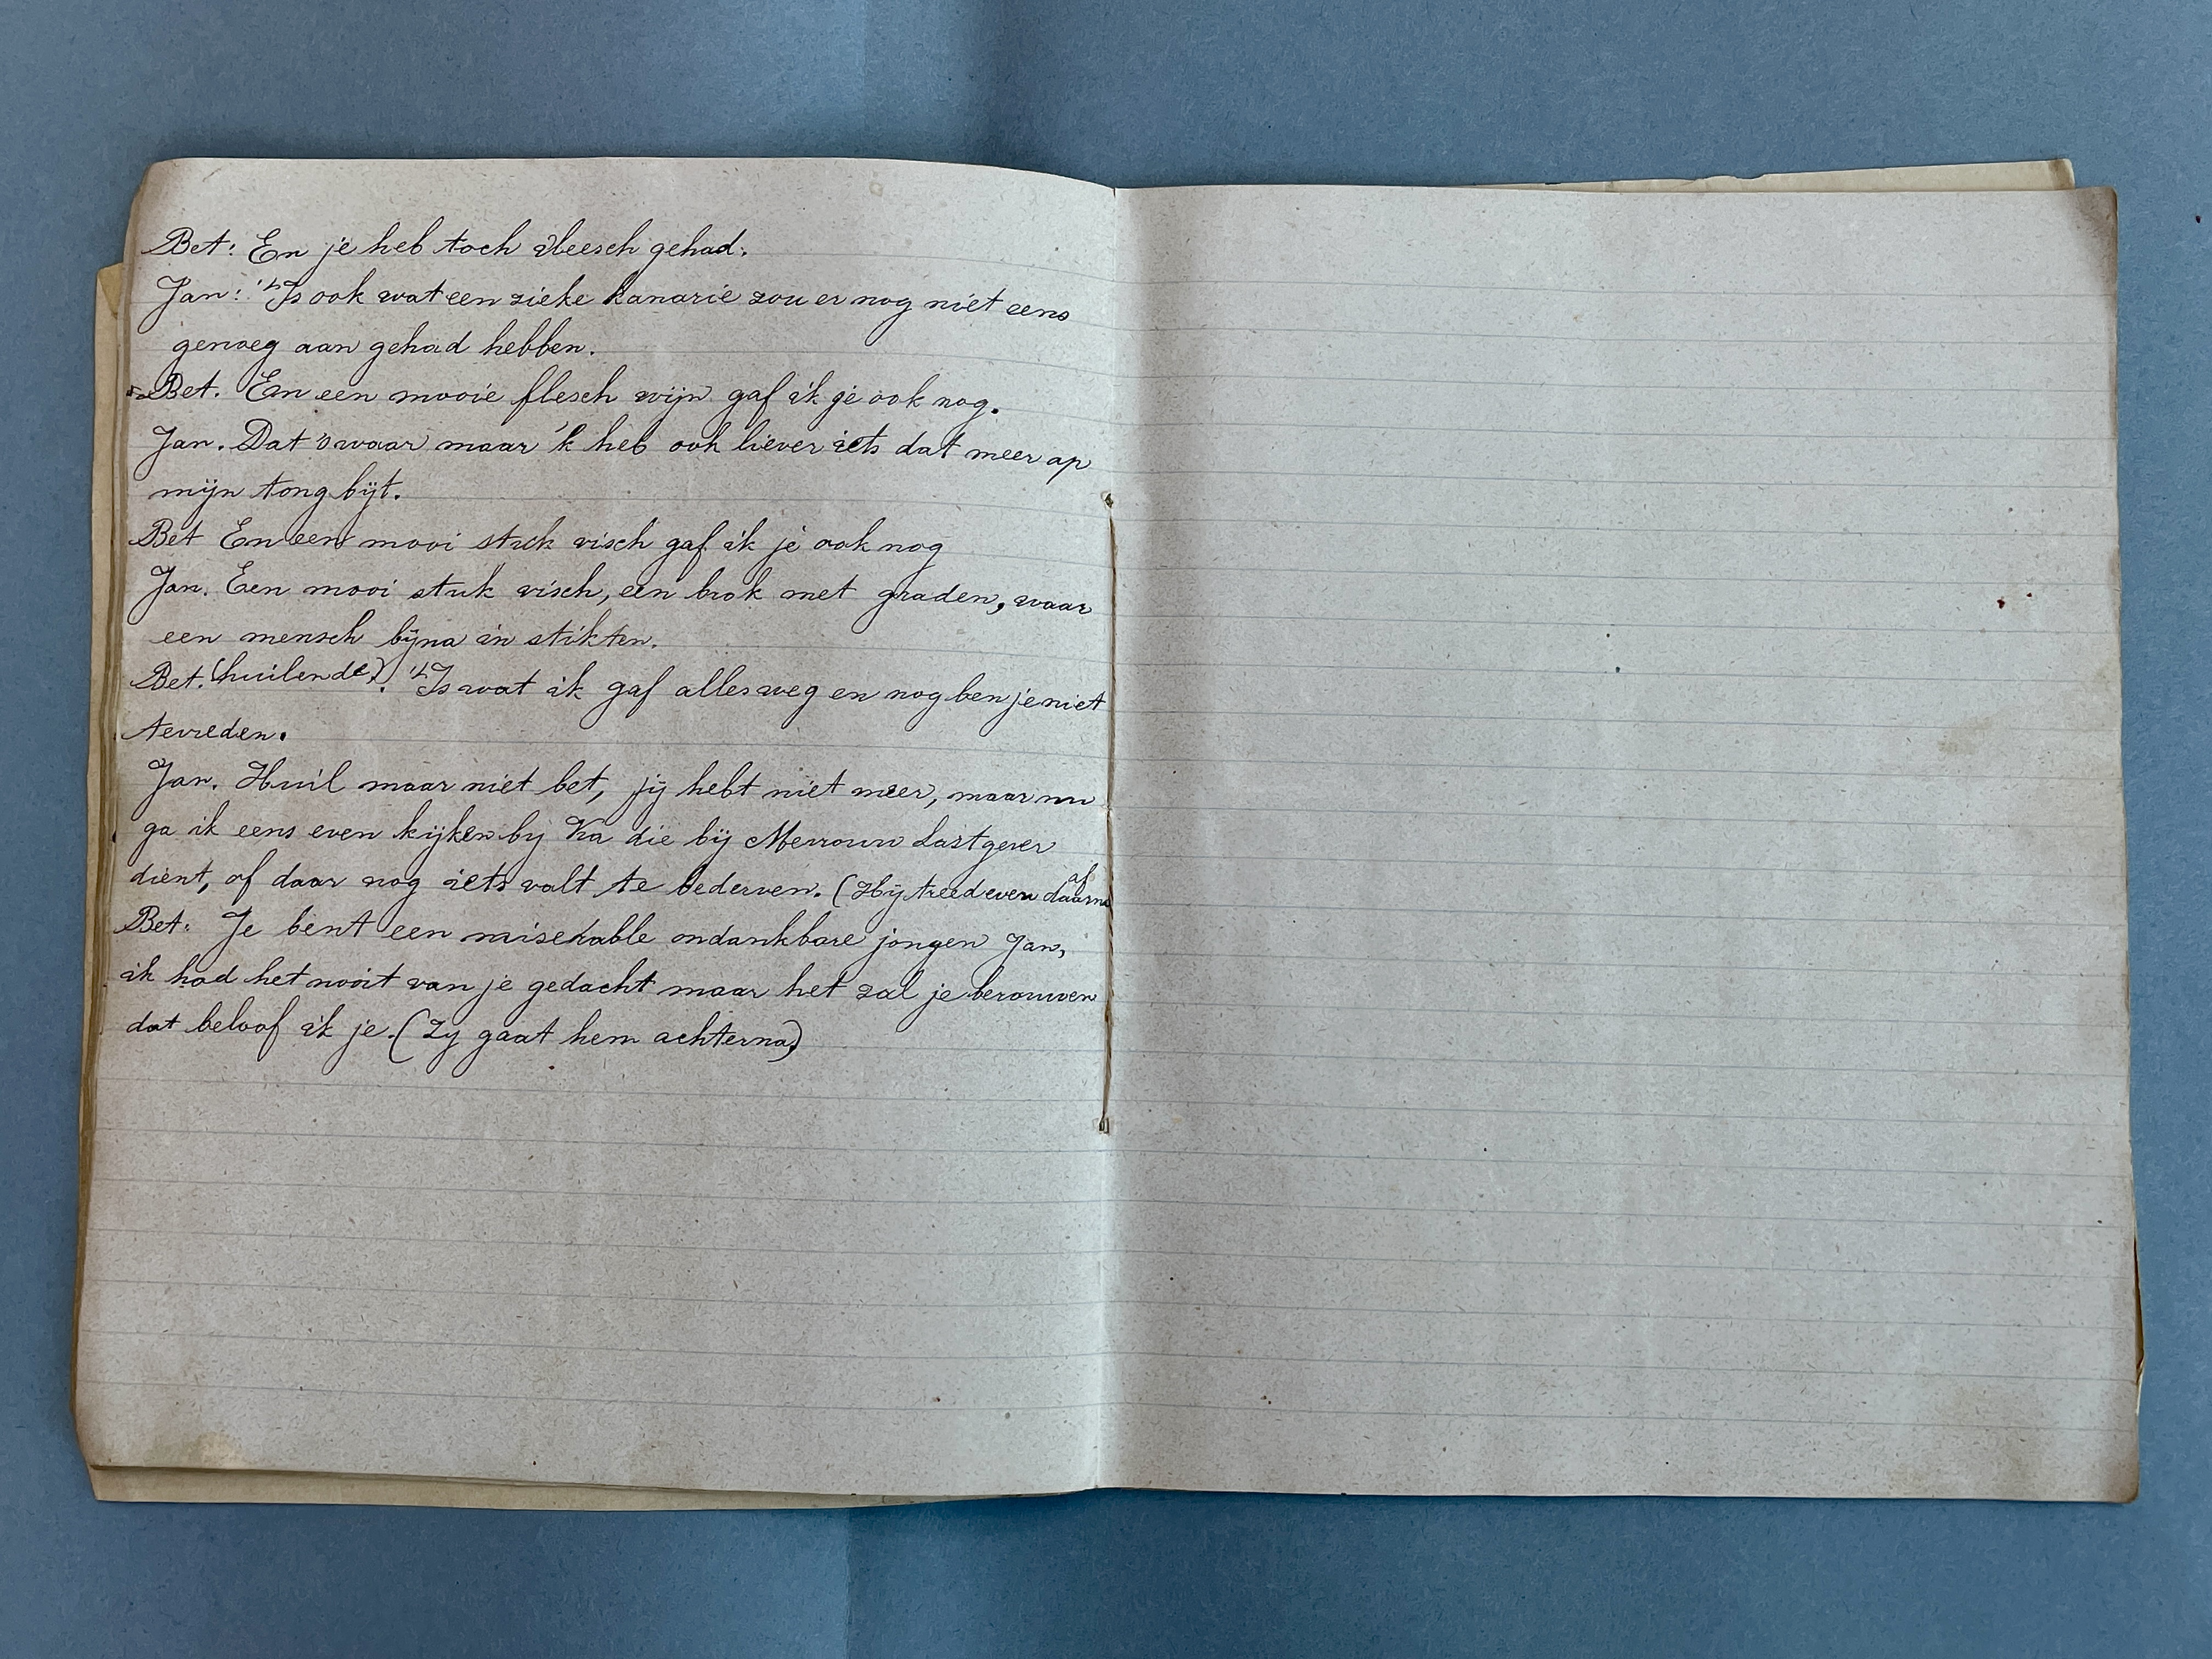 Bet: En je heb toch vleesch gehad.
Jan: 't Is ook wat een zieke kanarie zou er nog niet eens
genoeg aan gehad hebben.
Bet. En een mooie flesch wijn gaf ik je ook nog.
Jan. Dat 's waar maar 'k heb ook liever iets dat meer op
mijn tong bijt.
Bet En een mooi stuk visch gaf ik je ook nog
Jan. Een mooi stuk visch, een brok met graden, waar
een mensch bijna in stikten.
Bet. (huilende). 't Is wat ik gaf alles weg en nog ben je niet
tevreden.
Jan. Huil maar niet bet, jij hebt niet meer, maar nu
ga ik eens even kijken bij Ka die bij Mevrouw Lastgever
dient, of daar nog iets valt te bederven. (Hij treed even daarna af
Bet: Je bent een miserable ondankbare jongen Jan,
ik had het nooit van je gedacht maar het zal je berouwen
dat beloof ik je. (Zy gaat hem achterna)